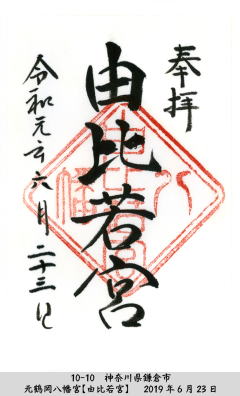 奉拝
由比若宮
令和元年六月二十三日
10-10 神奈川県鎌倉市
元鶴岡八幡宮【由比若宮】 2019年6月23日